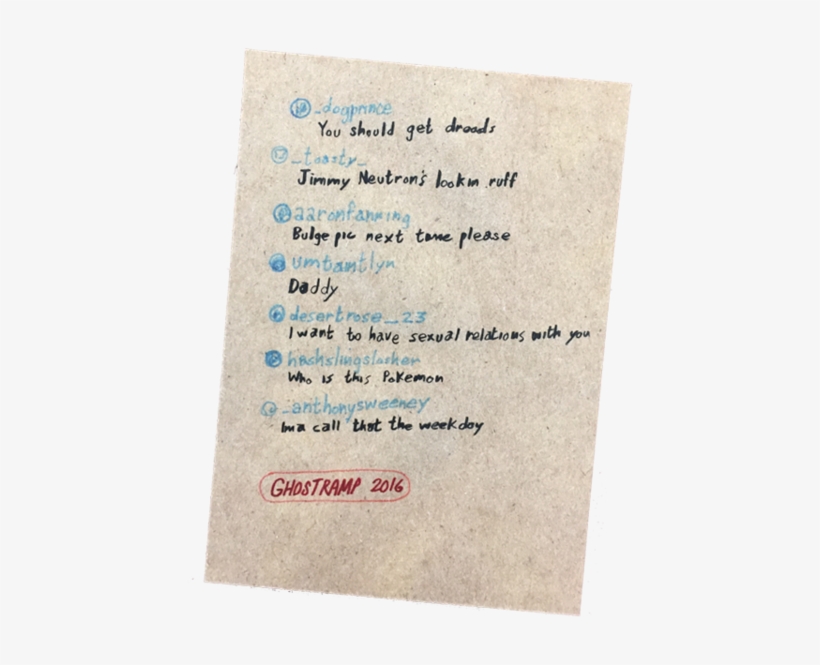 _dogprince
You should get dreads
_toasty_
Jimmy Neutron's lookin ruff
aaronfanning
Bulge pic next time please
umtantlyn
Daddy
desertrose__23
I want to have sexual relations with you
hashslingslasher
Who is this Pokemon
_anthonysweeney
Ima call that the weekday
GHOSTRAMP 2016